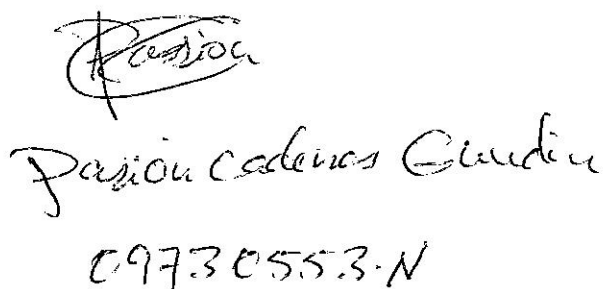 Pasion
Pasión Cadenas Gundin
09730553-N